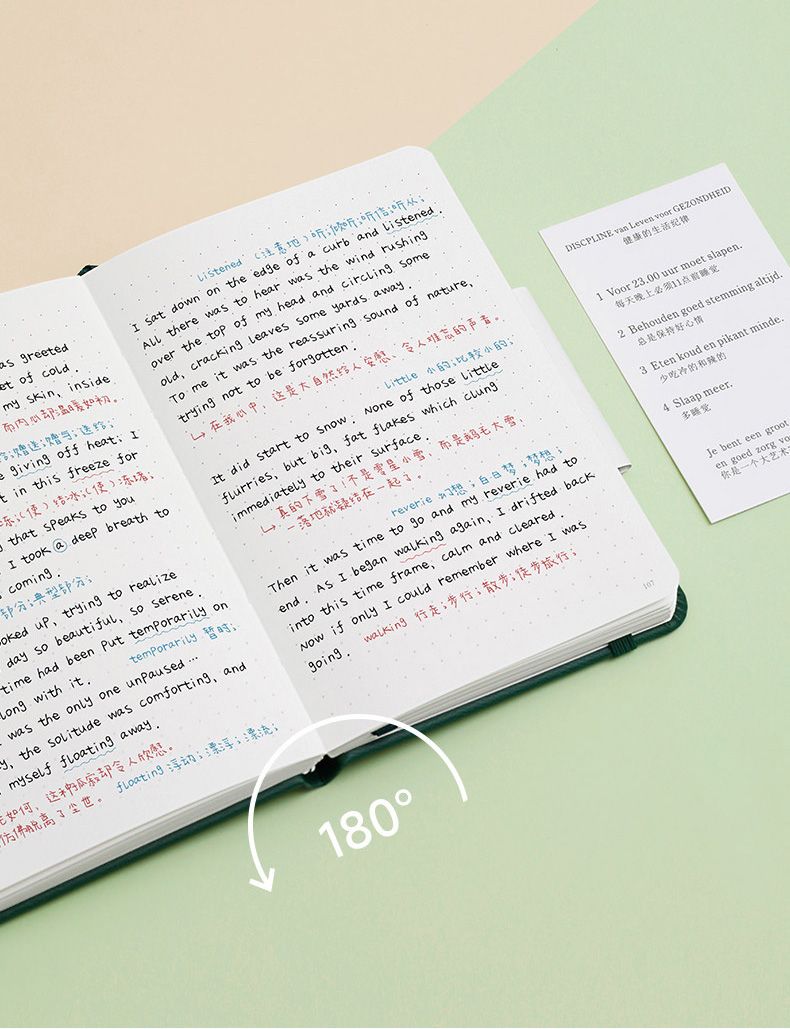 as greeted
et of cold.
my skin, inside
而内心却温暖如初。
赠送;赠与;送给;
e giving off heat; I
t in this freeze for
(使)结冰;(使)冻堵;
that speaks to you
I took a deep breath to
coming.
部分;典型部分;
oked up, trying to realize
day so beautiful, so serene.
time had been put temporarily on
long with it. temporarily 暂时;
was the only one unpaused...
y, the solitude was comforting, and
myself floating away.
如何、这种孤寂却令人欣慰。
仿佛脱离了尘世。 floating 浮动;漂浮;漂流;
listened (注意地)听;倾听;听信;听从;
I sat down on the edge of a curb and listened.
All there was to hear was the wind rushing
over the top of my head and circling some
old, cracking leaves some yards away.
To me it was the reassuring sound of nature,
trying not to be forgotten.
↳ 在我心中、这是大自然给人安慰、令人难忘的声音。
little 小的;比较小的;
It did start to snow. None of those little
flurries, but big, fat flakes which clung
immediately to their surface.
↳ 真的下雪了!不是零星小雪、而是鹅毛大雪、
一落地就凝结在一起了。
reverie 幻想;白日梦;梦想;
Then it was time to go and my reverie had to
end. As I began walking again, I drifted back
into this time frame, calm and cleared.
Now if only I could remember where I was
going. walking 行走;步行;散步;徒步旅行;
107
DISCPLINE van Leven voor GEZONDHEID
健康的生活纪律
1 Voor 23.00 uur moet slapen.
每天晚上必须11点前睡觉
2 Behouden goed stemming altijd.
总是保持好心情
3 Eten koud en pikant minde.
少吃冷的和辣的
4 Slaap meer.
多睡觉
Je bent een groot
en goed zorg vo
你是一个大艺术
180°